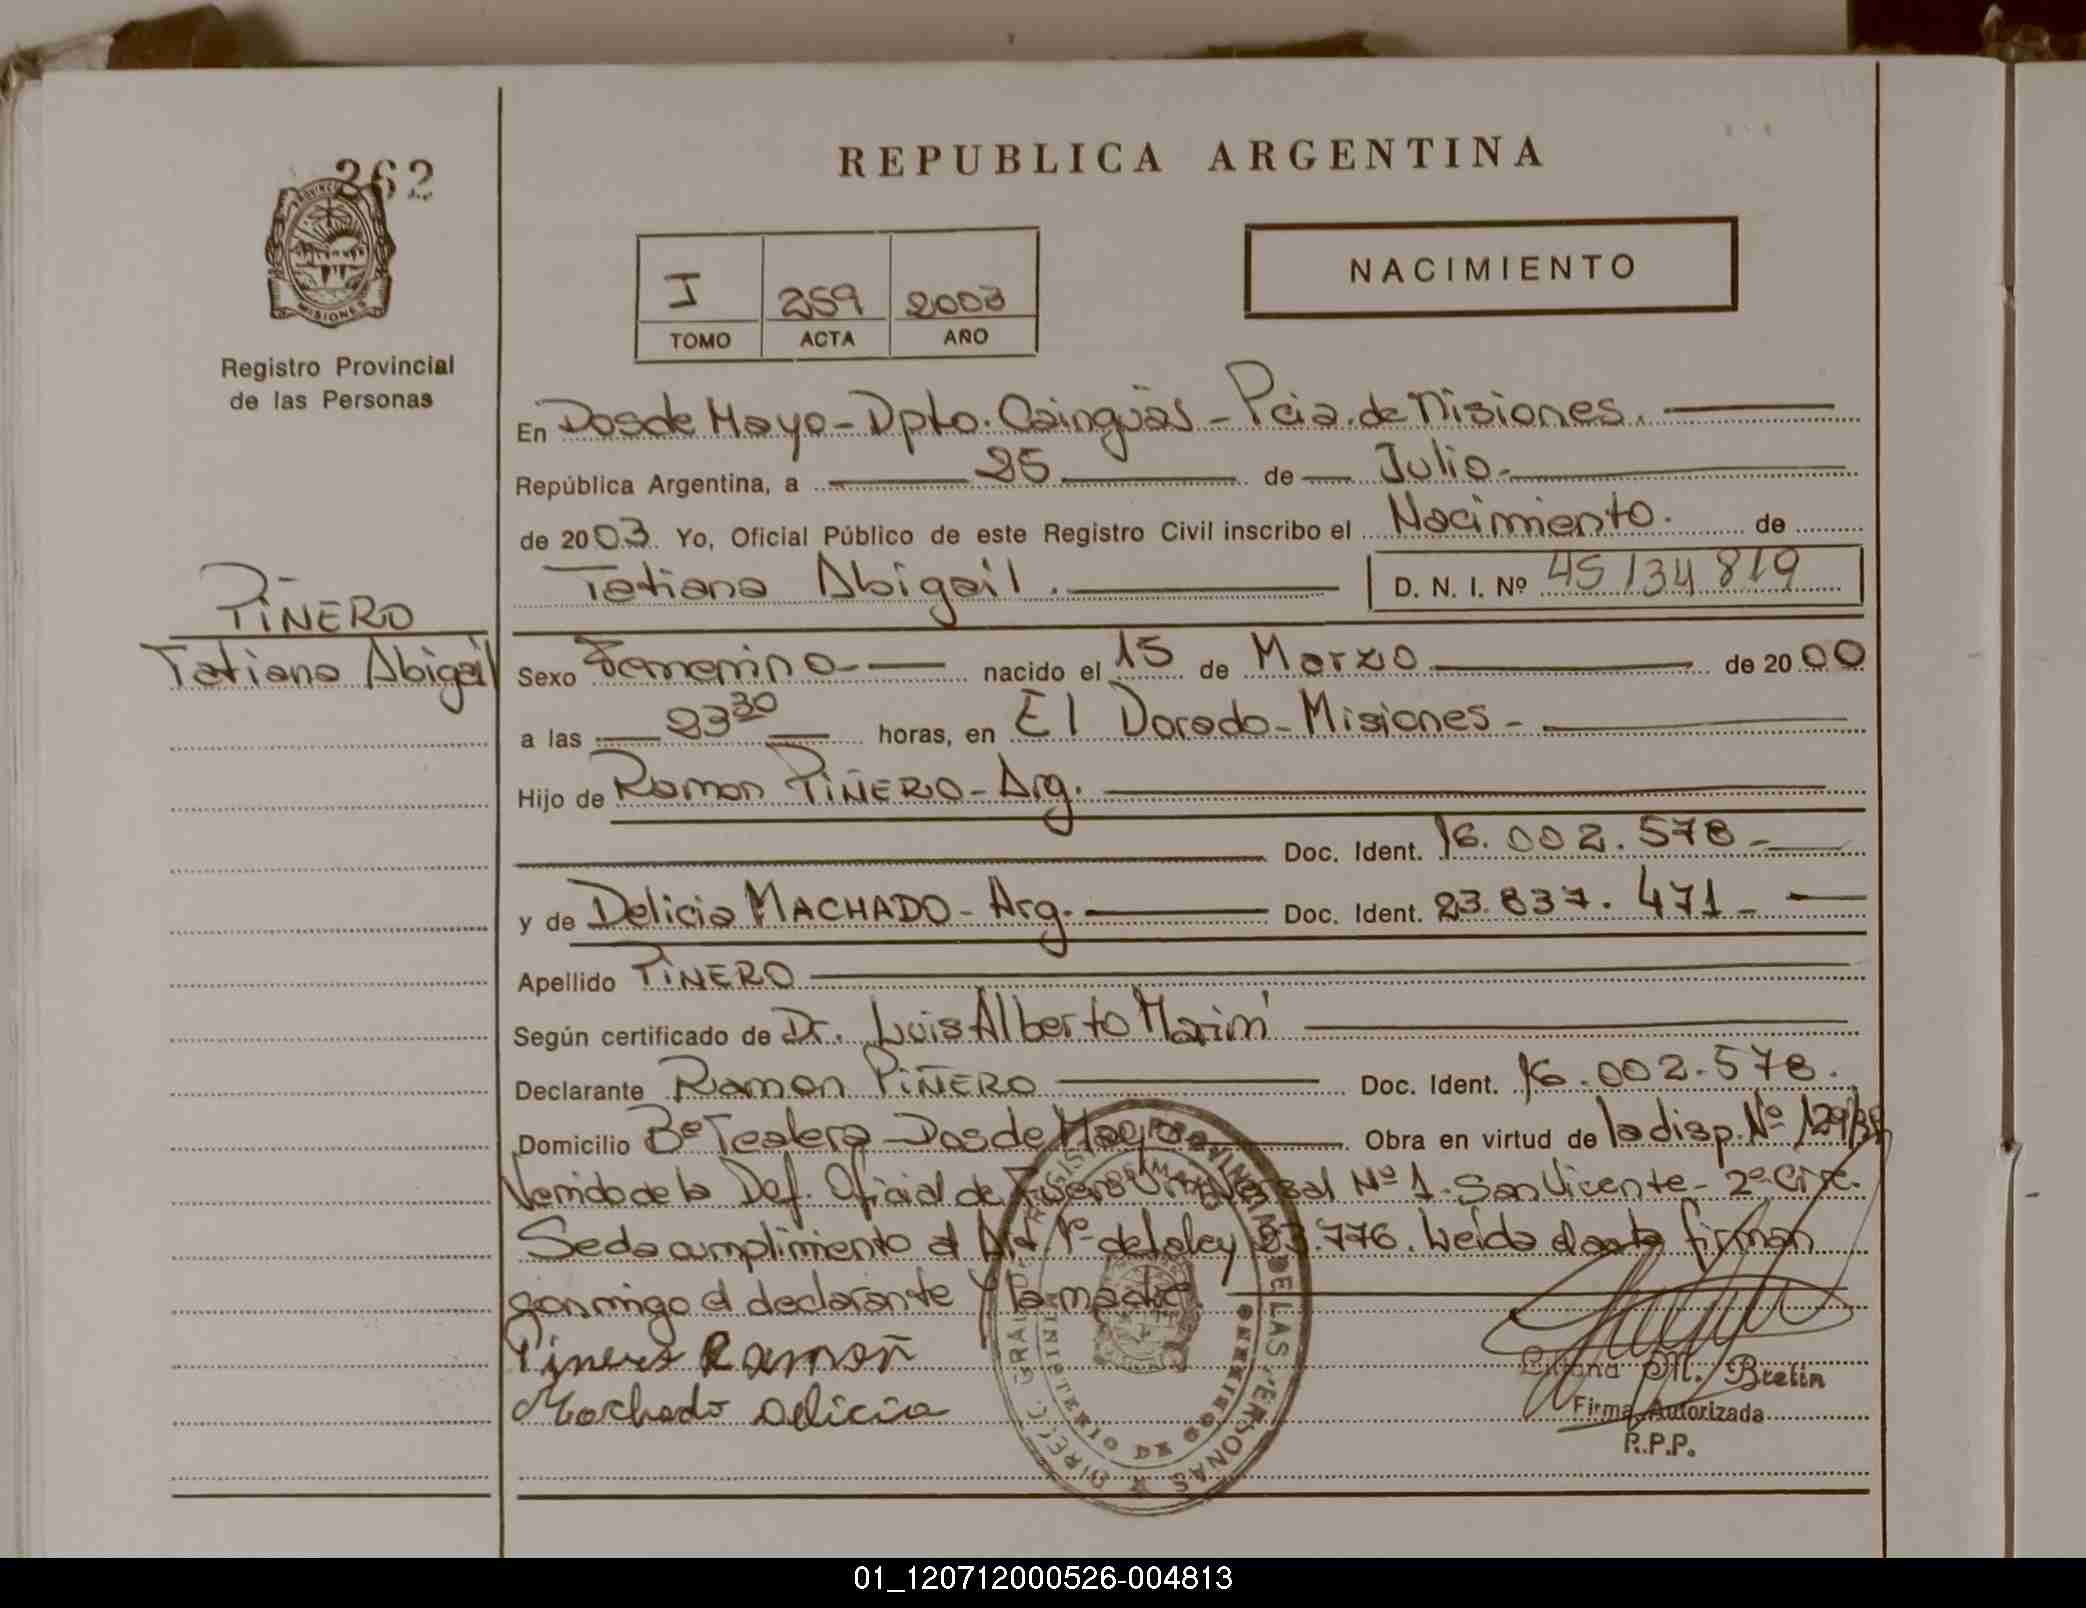 262
REPUBLICA ARGENTINA
PROVINCIA
MISIONES
Registro Provincial
de las Personas
I 259 2003
TOMO ACTA AÑO
NACIMIENTO
En Dos de Mayo - Dpto. Cainguás - Pcia. de Misiones.
República Argentina, a 25 de Julio.
de 2003. Yo, Oficial Público de este Registro Civil inscribo el Nacimiento. de
Tatiana Abigail. D. N. I. Nº 45134819
PIÑERO
Tatiana Abigail
Sexo Femenino nacido el 15 de Marzo de 2000
a las 23 30 horas, en El Dorado - Misiones -
Hijo de Ramon PIÑERO - Arg.
Doc. Ident. 16.002.578 -
y de Delicia MACHADO - Arg. - Doc. Ident. 23.837.471 -
Apellido PIÑERO
Según certificado de Dr. Luis Alberto
Declarante Ramon PIÑERO Doc. Ident. 16.002.578.
Domicilio Bº Tealera - Dos de Mayo Obra en virtud de la disp. Nº
de la Def. Oficial de Nº 1. San Vicente - 2ª Circ.
Se da cumplimiento al Art. 1º de la ley 23.776. Leída el acta firman
conmigo el declarante y la madre.
Piñero Ramon
Machado delicia
M. Bretin
Firma Autorizada
R.P.P.
01_120712000526-004813